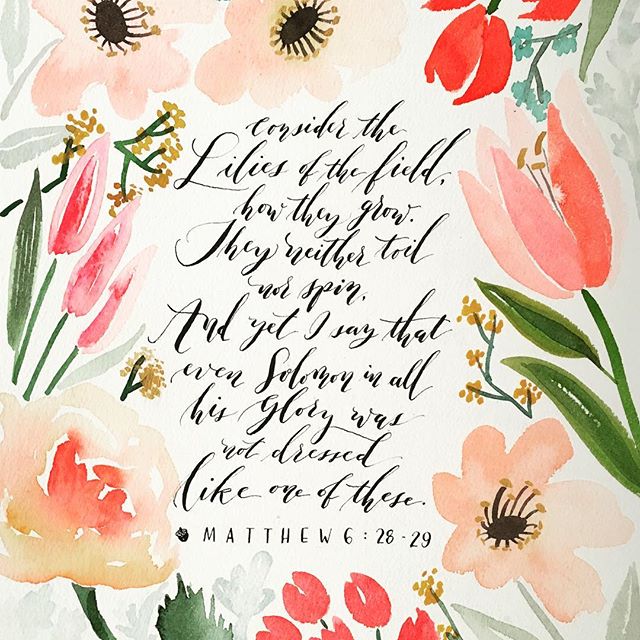 consider the
Lilies of the field,
how they grow.
They neither toil
nor spin,
And yet I say that
even Solomon in all
his Glory was
not dressed
like one of these.
MATTHEW 6:28-29